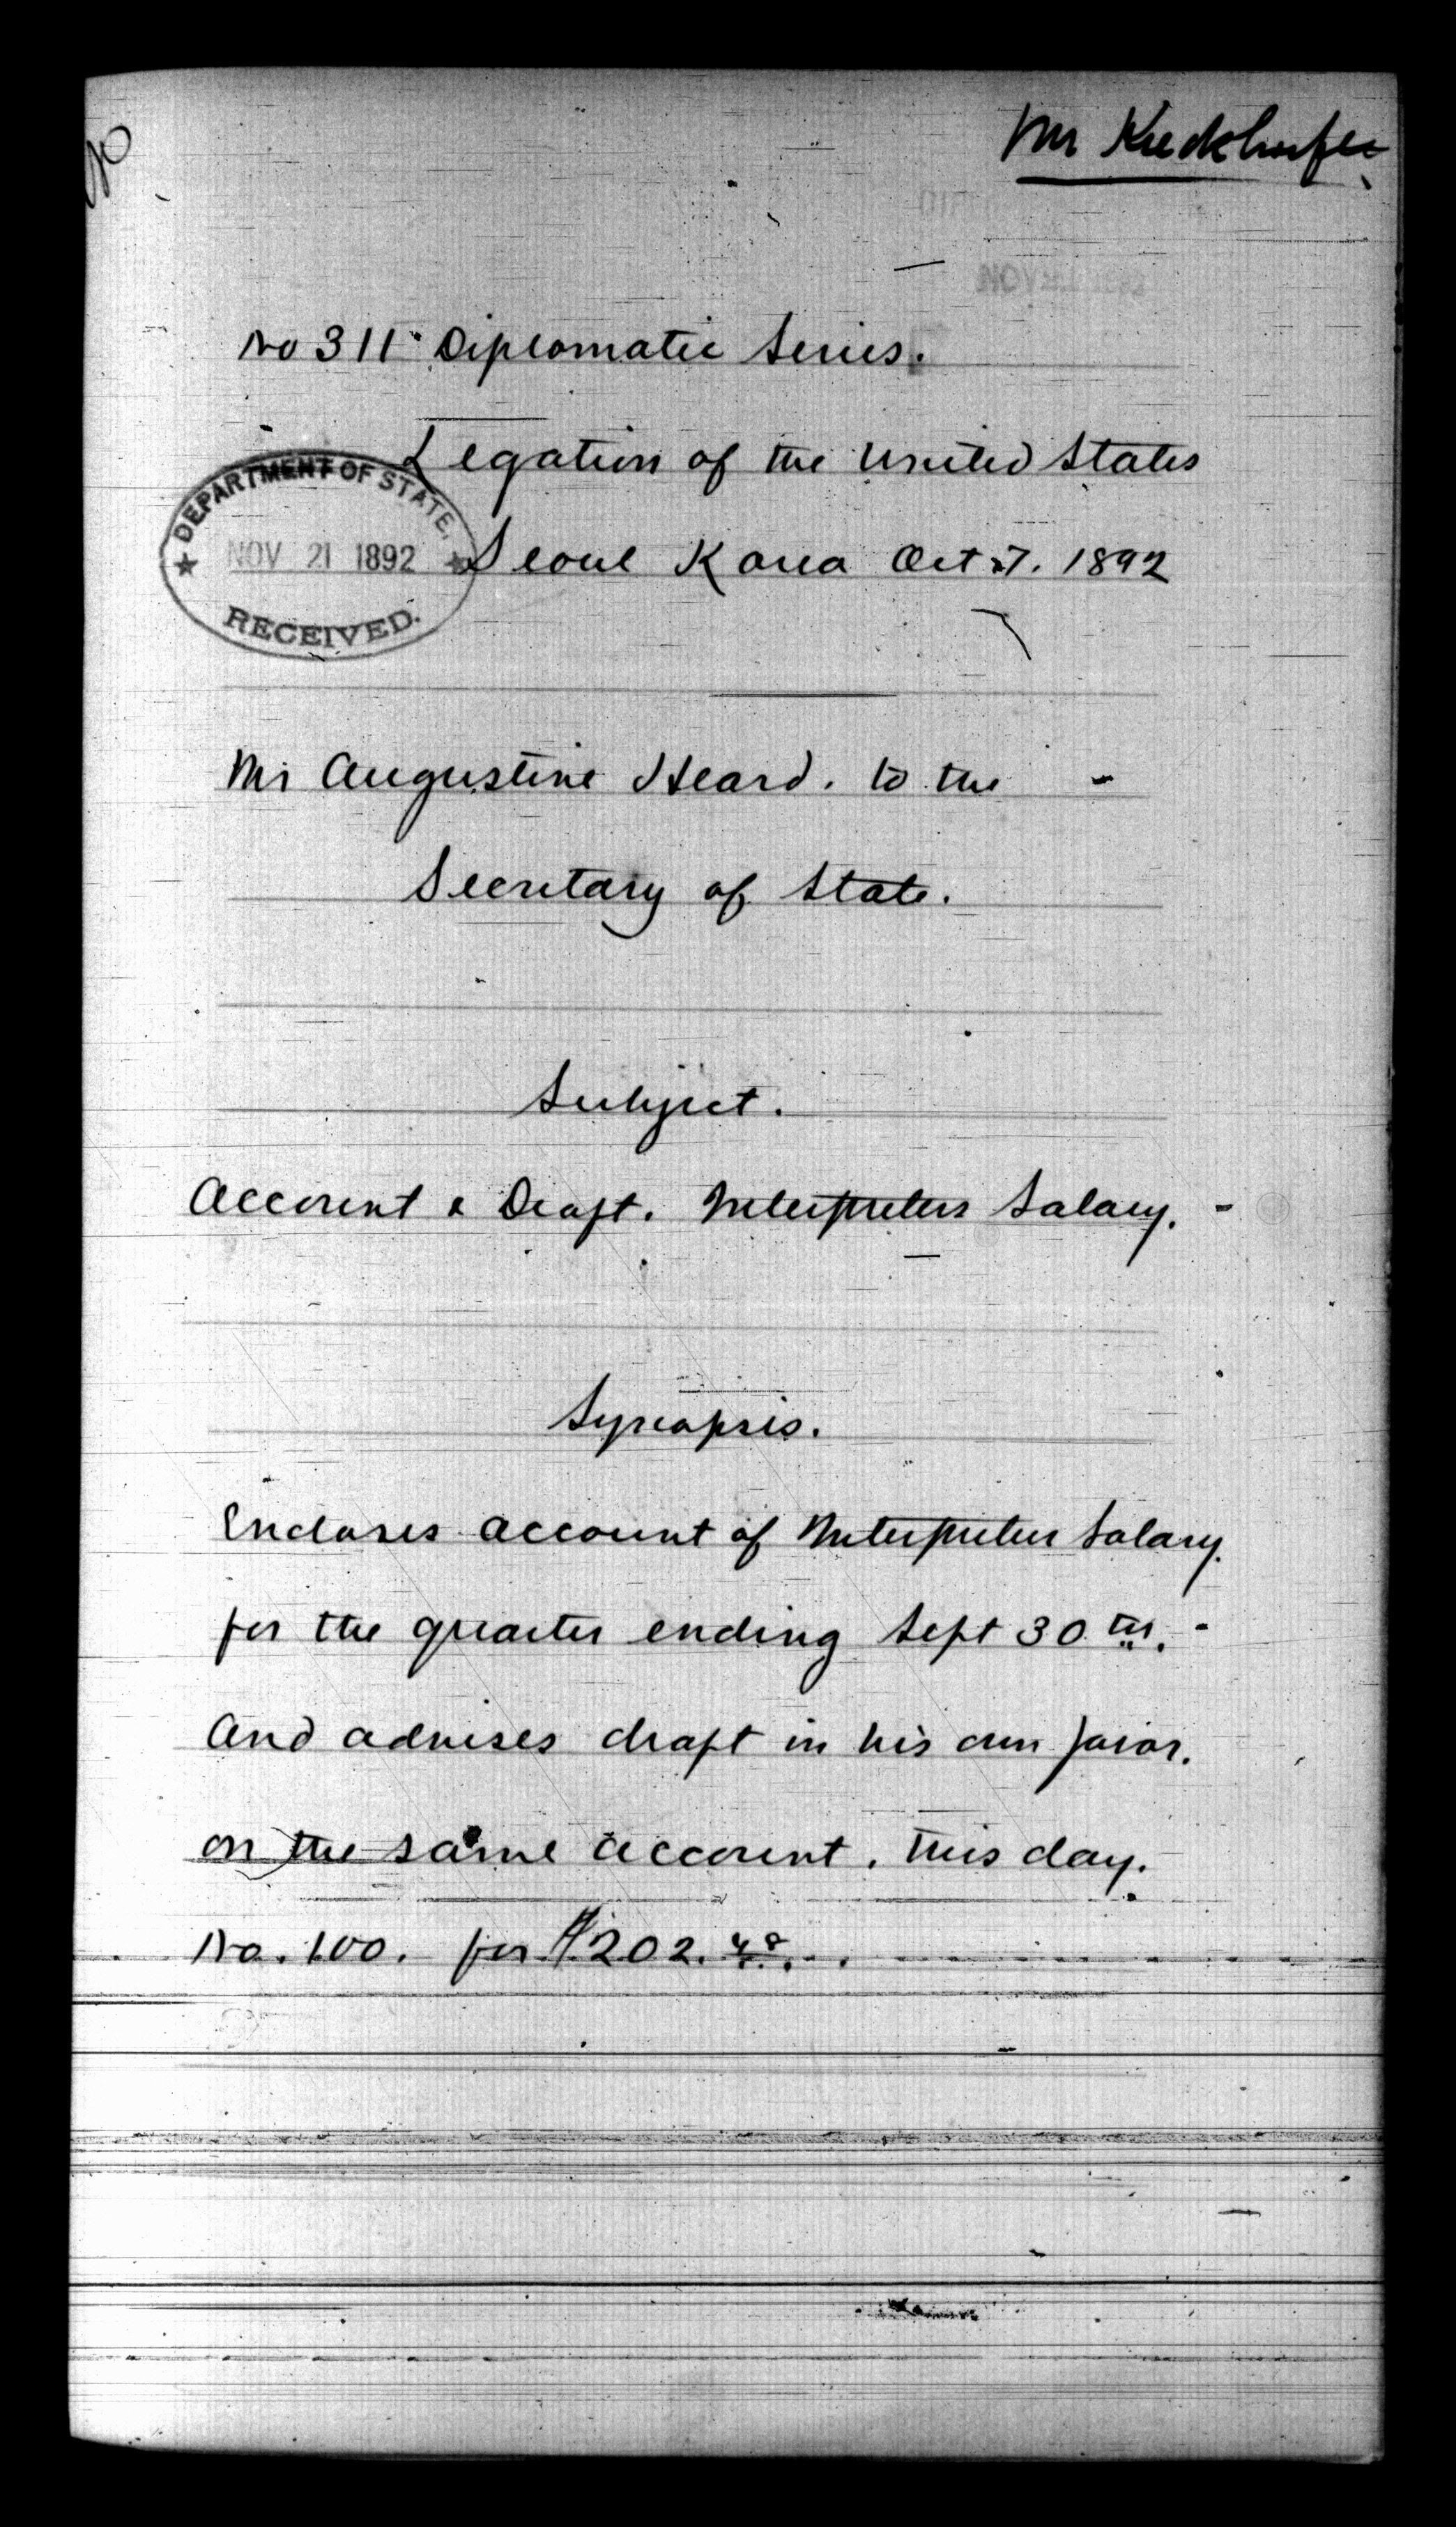 Mr Kieckhoefer
No 311 Diplomatic Series.
Legation of the United States
DEPARTMENT OF STATE,
NOV 21 1892
RECEIVED.
Seoul Korea Oct 7. 1892
Mr Augustine Heard. to the
Secretary of State.
Subject.
Account & Draft. Interpreters Salary.
Synopsis.
Encloses account of Interpreters Salary.
for the quarter ending Sept 30 th.
And advises draft in his own favor.
on the same account. this day.
No. 100. for $202.48.